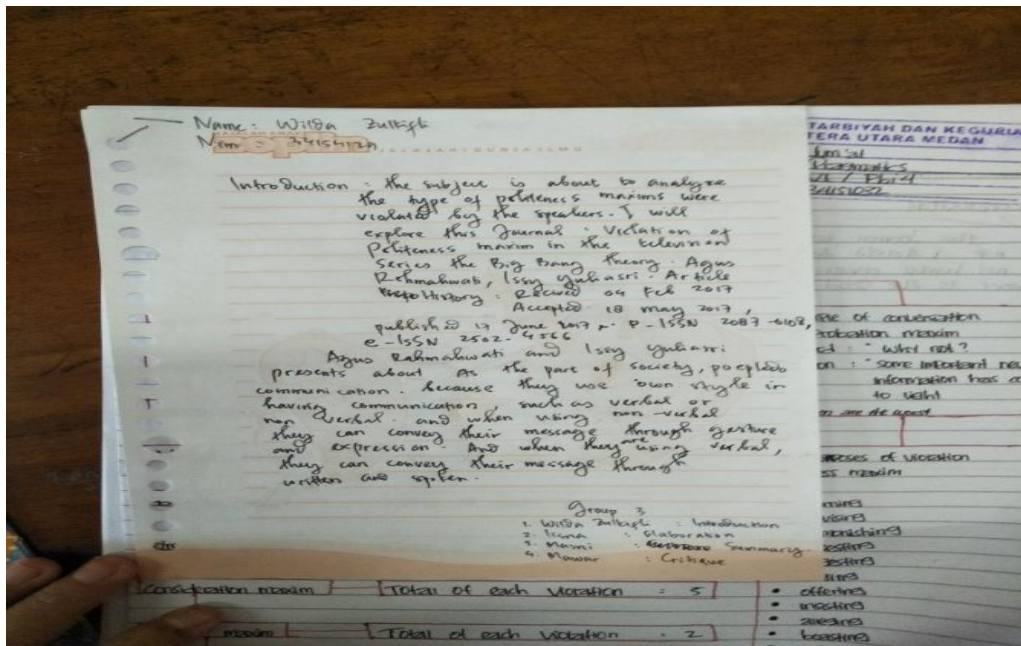 Name : Wilda Zulkifli
Nim : 34154124
Introduction : the subject is about to analyze
the type of politeness maxims were
violated by the speakers. I will
explore this Journal : Violation of
Politeness maxim in the television
Series the Big Bang theory. Agus
Rohmahwati, Issy Yuliasri. Article
History : Recived 04 Feb 2017
Accepted 18 may 2017,
published 17 June 2017. P-ISSN 2087-0108,
e-ISSN 2502-4566
Agus Rahmahwati and Issy Yuliasri
presents about As the part of society, poeple do
communication. because they use own style in
having communication, such as verbal or
non verbal. and when using non-verbal
they can convey their message through gesture
and expression. And when they are using verbal,
they can convey their message through
written and spoken.
Group 3
1. Wilda Zulkifli : Introduction
2. Icona : Elaboration
3. Masni : Summary.
4. Mawar : Critique
TARBIYAH DAN KEGURUA
TERA UTARA MEDAN
Jum'at
Pragmatics
VI / PBI 4
34151032
of conversation
maxim
: " why not ?
: " some important new
information has co
to light
are the worst
of violation
maxim
offering
inserting
boasting
Consideration maxim Total of each Violation = 5
maxim Total of each Violation = 2